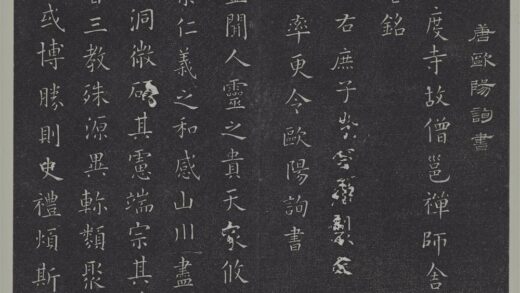 唐歐陽詢書
度寺故僧邕禪師舍
銘
右庶子李百藥製文
率更令歐陽詢書
聞人靈之貴天象攸
仁義之和感山川盡
洞微研其慮端宗其
三教殊源異軫類聚
或博勝則史禮煩斯